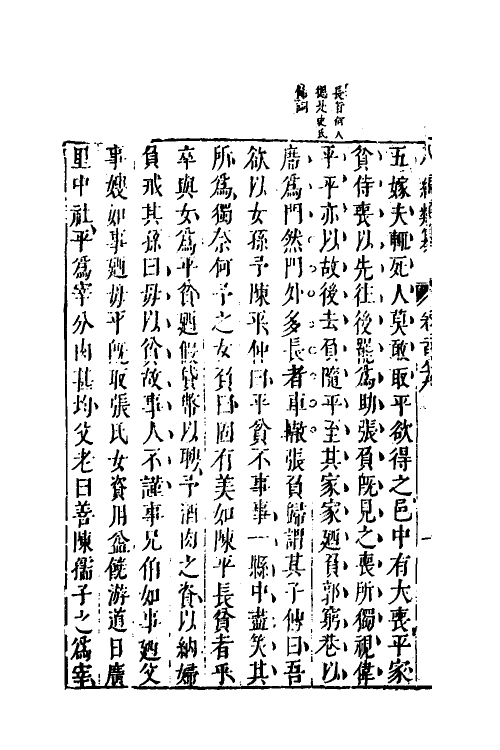 史氏
五嫁夫輒死人莫敢取平欲得之邑中有大喪平家
貧侍喪以先往後罷爲助張負旣見之喪所獨視偉
平平亦以故後去負隨平至其家家廼負郭窮巷以
席爲門然門外多長者車轍張負歸謂其子仲曰吾
欲以女孫予陳平仲曰平貧不事事一縣中盡笑其
所爲獨奈何予之女負曰固有美如陳平長貧者乎
卒與女爲平貧廼假貸幣以聘予酒肉之資以納婦
負戒其孫曰毋以貧故事人不謹事兄伯如事廼父
事嫂如事廼母平旣取張氏女資用益饒游道日廣
里中社平爲宰分肉甚均父老曰善陳孺子之爲宰